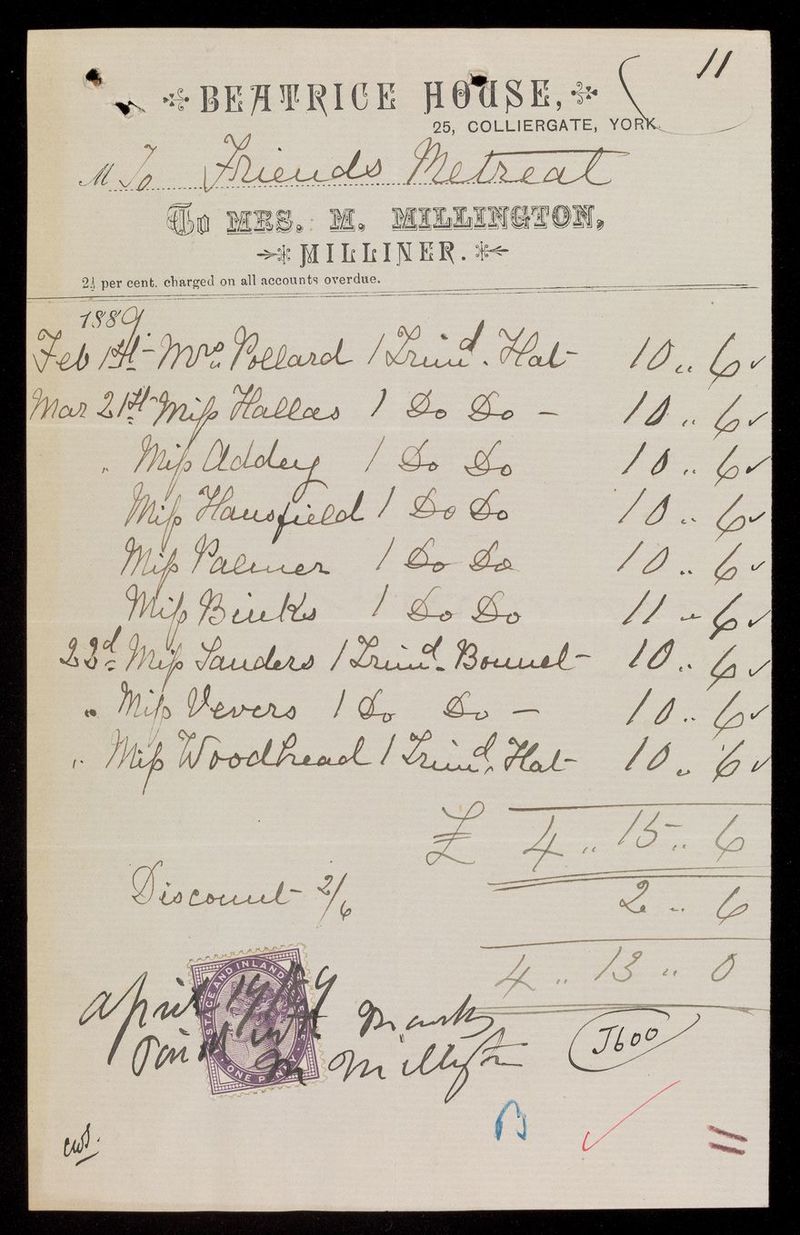 11
BEATRICE HOUSE,
25, COLLIERGATE, YORK.
M To Friends Retreat
To MRS. M. MILLINGTON,
MILLINER.
2½ per cent. charged on all accounts overdue.
1889.
Feb 1st - Mrs. Pollard 1 Trimd. Hat - 10 .. 6
Mar 21st - Miss Hallas 1 Do Do - 10 .. 6
" Miss Addey 1 Do Do 10 .. 6
Miss Hansfield 1 Do Do 10 .. 6
Miss Palmer 1 Do Do 10 .. 6
Miss Binks 1 Do Do 11 - 6
22d Miss Sanders 1 Trimd. Bonnet - 10 .. 6
" Miss Vevers 1 Do Do - 10 .. 6
" Miss Woodhead 1 Trimd. Hat - 10 .. 6
£ 4 .. 15 .. 6
Discount - 2/6 2 .. 6
4 .. 13 .. 0
POSTAGE AND INLAND REVENUE
ONE PENNY
April 19/89
Paid with thanks
M Millington
J600
B
cws.